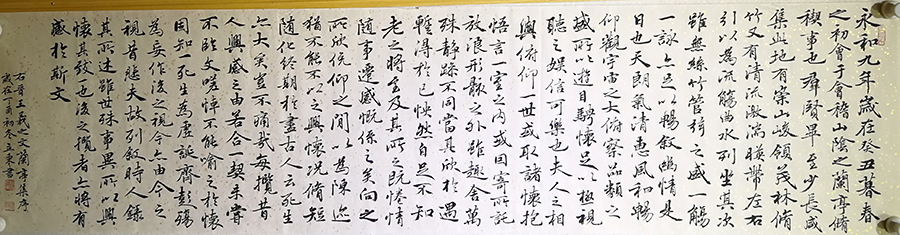 永和九年歲在癸丑暮春
之初會于會稽山陰之蘭亭脩
禊事也群賢畢至少長咸
集此地有崇山峻領茂林脩
竹又有清流激湍暎帶左右
引以為流觴曲水列坐其次
雖無絲竹管絃之盛一觴
一詠亦足以暢叙幽情是
日也天朗氣清惠風和暢
仰觀宇宙之大俯察品類之
盛所以遊目騁懷足以極視
聽之娛信可樂也夫人之相
與俯仰一世或取諸懷抱
悟言一室之內或因寄所託
放浪形骸之外雖趣舍萬
殊靜躁不同當其欣於所遇
暫得於己怏然自足不知
老之將至及其所之既惓情
隨事遷感慨係之矣向之
所欣俛仰之間以為陳迹
猶不能不以之興懷況脩短
隨化終期於盡古人云死生
亦大矣豈不痛哉每攬昔
人興感之由若合一契未嘗
不臨文嗟悼不能喻之於懷
固知一死生為虛誕齊彭殤
為妄作後之視今亦由今之
視昔悲夫故列叙時人錄
其所述雖世殊事異所以興
懷其致一也後之攬者亦將有
感於斯文
右晉王羲之文蘭亭集序
歲在丁酉初冬立東書